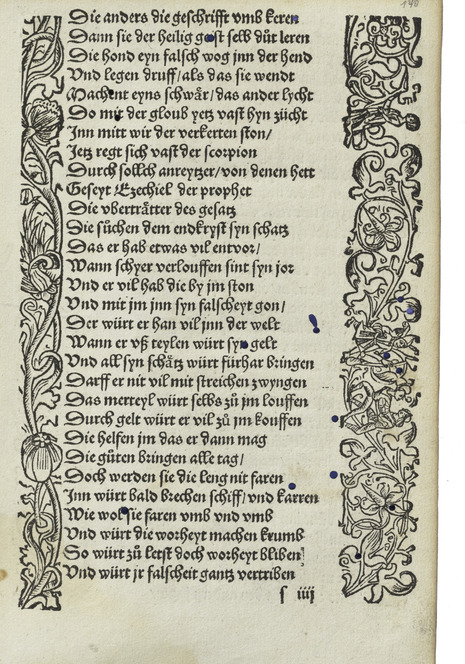 140
Die anders die geschrifft vmb keren
Dann sie der heilig geist selb düt leren
Die hond eyn falsch wog jnn der hend
Vnd legen druff/als das sie wendt
Machent eyns schwår/das ander lycht
Do mit der gloub yetz vast hyn zücht
Jnn mitt wir der verkerten ston/
Jetz regt sich vast der scorpion
Durch sollch anreytzer/von denen hett
Geseyt Ezechiel der prophet
Die vberträtter des gesatz
Die suͦchen dem endkryst syn schatz
Das er hab etwas vil entvor/
Wann schyer verlouffen sint syn jor
Vnd er vil hab die by jm ston
Vnd mit jm jnn syn falscheyt gon/
Der würt er han vil jnn der welt
Wann er vß teylen würt syn gelt
Vnd all syn schätz würt fürhar bringen
Darff er nit vil mit streichen zwyngen
Das merteyl würt selbs zuͦ jm louffen
Durch gelt würt er vil zuͦ jm kouffen
Die helfen jm das er dann mag
Die güten bringen alle tag/
Doch werden sie die leng nit faren
Jnn würt bald brechen schiff/vnd karren
Wie wol sie faren vmb vnd vmb
Vnd würt die worheyt machen krumb
So würt zuͦ letst doch worheyt bliben
Vnd würt jr falscheit gantz vertriben
s iiij